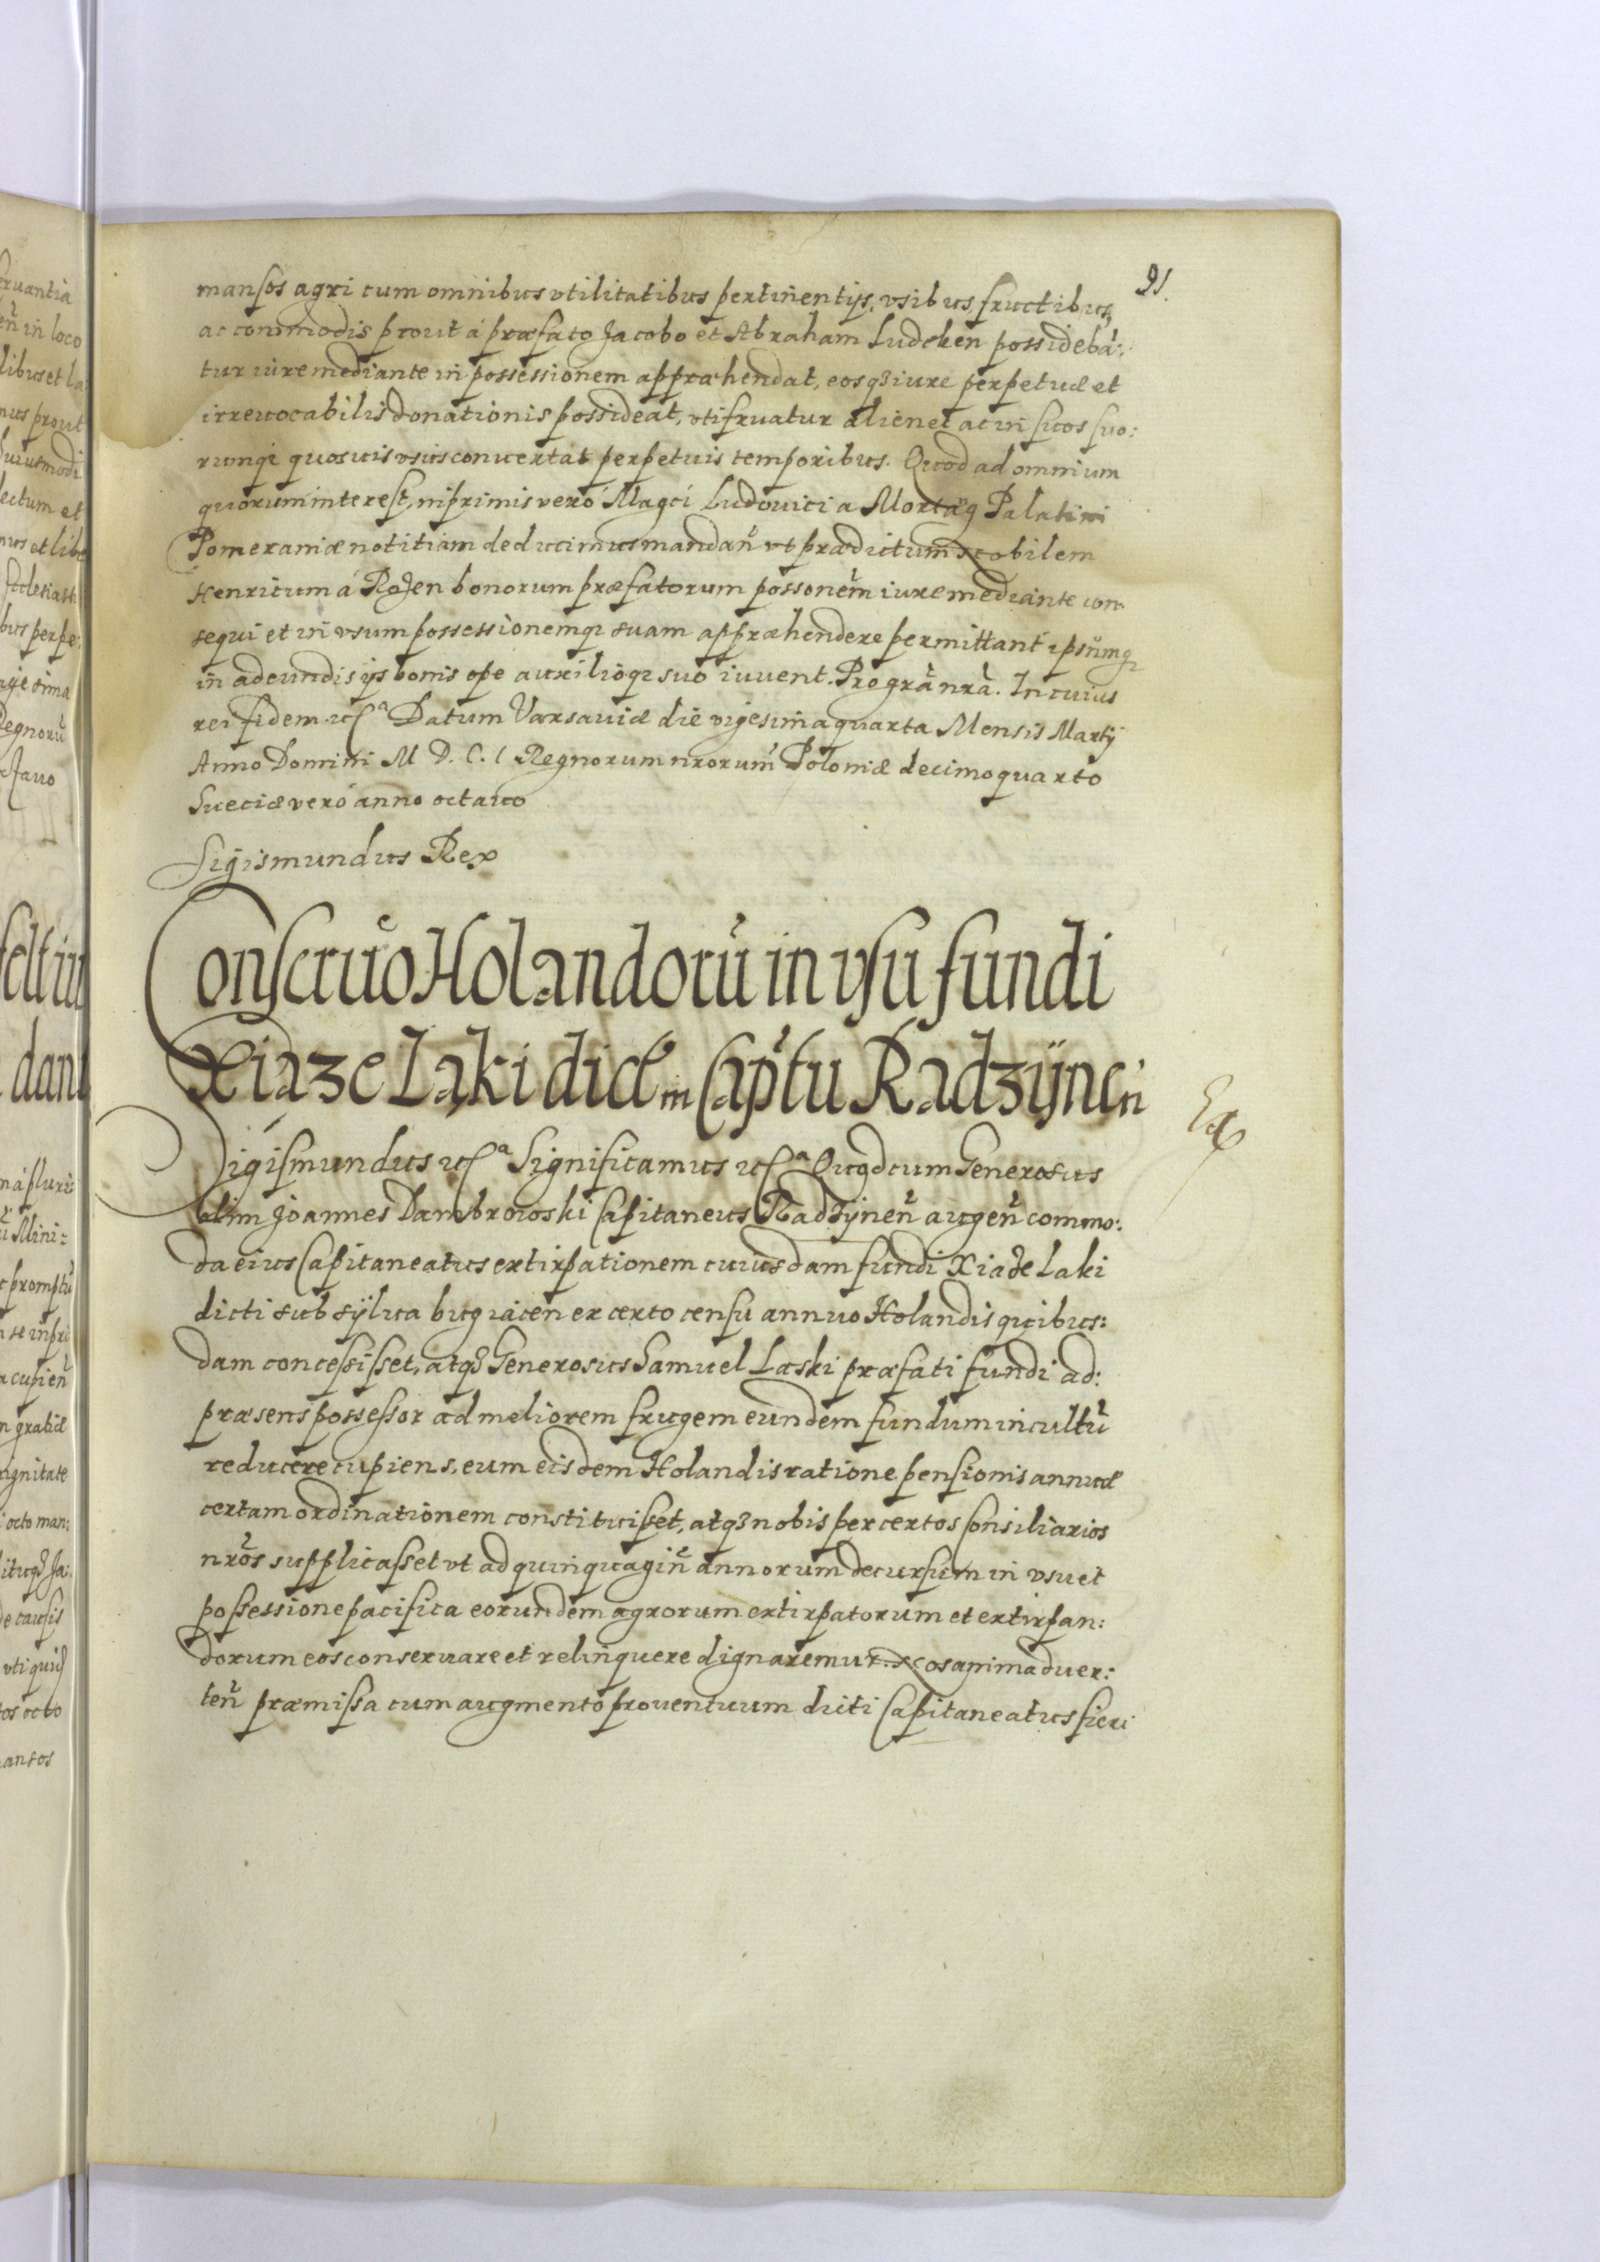 91.
mansos agri cum omnibus vtilitatibus pertinentijs, vsibus, fructibus,
ac commodis prout á præfato Jacobo et Abraham Ludcken possidebã:
tur iure mediante in possessionem apprahendat, eosq3 iure perpetuæ et
irreuocabilis donationis possideat, vtifruatur alienet ac in suos suo:
rumq3 quosuis vsus conuertat perpetuis temporibus. Quod ad omnium
quorum interest, inprimis vero Magci Ludouici a Mortãg Palatini
Pomeraniæ notitiam deducimus mandañ vt prædictum Nobilem
Henricum á Rozen bonorum præfatorum possonẽm iure mediante con
sequi et in vsum possessionemq3 suam apprahendere permittant ipsũmq3
in adeundis ijs bonis ope auxilioq3 suo iuuent. Pro grã nrã. In cuius
rei fidem etcª Datum Varsauiæ die vigesima quarta Mensis Martij
Anno Domini M D. C. I Regnorum nrorum̃ Poloniæ decimoquarto
Sueciæ veró anno octauo
Sigismundus Rex
Conseruõ Holandorũ in vsu fundi
Xiąze Ląki dictẽ in Cap̃tu Radzÿneñ
Sigismundus etcª Significamus etcª Quod cum Generosus
olim Joannes Dambrowski Capitaneus Radzÿneñ augeñ commo:
da eius Capitaneatus extirpationem cuiusdam fundi Xiadze Laki
dicti sub sÿlua bug iaceñ ex certo censu annuo Holandis quibus:
dam concessisset, atq3 Generosus Samuel Laski præfati fundi ad:
præsens possessor ad meliorem frugem eundem fundum incultũ
reducere cupiens, cum eisdem Holandis ratione pensionis annuæ
certam ordinationem constituisset, atq3 nobis per certos Consiliarios
nrõs supplicasset vt ad quinquagiñ annorum decursum in vsu et
possessione pacifica eorundem agrorum extirpatorum et extirpan:
dorum eos conseruare et relinquere dignaremur. Nos animaduer:
teñ præmissa cum augmento prouentuum dicti Capitaneatus fieri